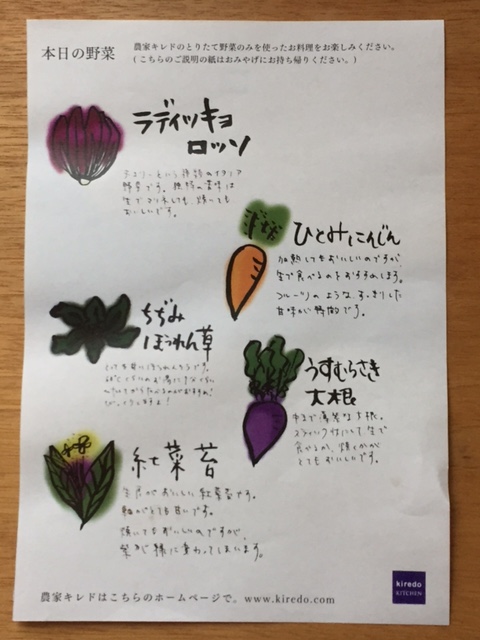 本日の野菜
農家キレドのとりたて野菜のみを使ったお料理をお楽しみください。
(こちらのご説明の紙はおみやげにお持ち帰りください。)
ラディッキョ
ロッソ
野菜です。独特の苦味は
おいしいです。
ひとみにんじん
加熱してもおいしいのですが
生で食べるのをおすすめします。
フルーツのような、すっきりした
甘味が特徴です。
ちぢみ
ほうれん草
うすむらさき
大根
中まで薄紫な大根。
スティック状にして生で
食べるか、焼くかが
とてもおいしいです。
紅菜苔
生食がおいしい紅菜苔です。
軸がとても甘いです。
焼いてもおいしいのですが、
紫が緑に変わってしまいます。
農家キレドはこちらのホームページで。www.kiredo.com
kiredo
KITCHEN